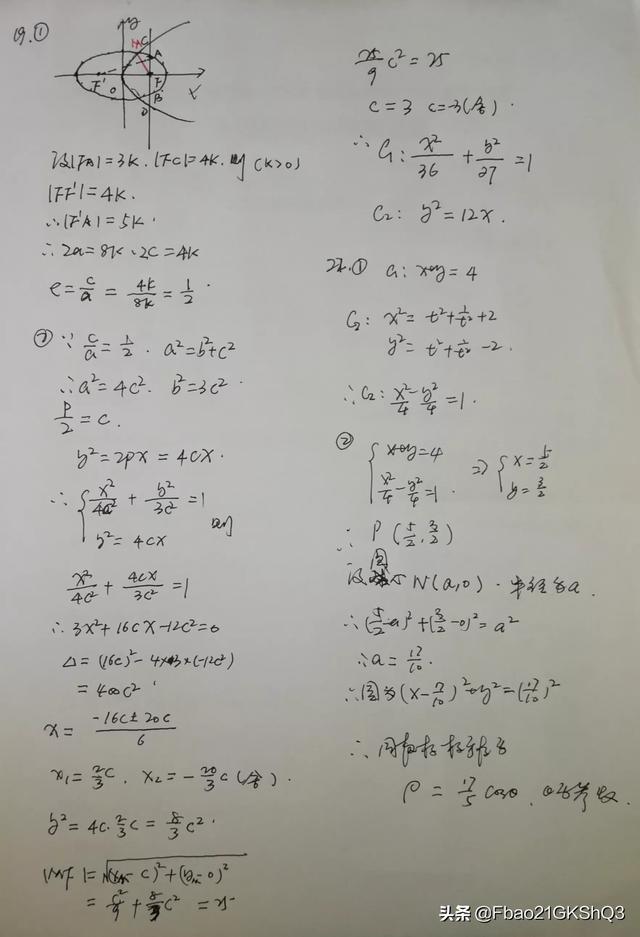 19.①
y
M
C
A
F'
O
F
B
D
x
设|FA|=3k.|FC|=4k.则(k>0)
|FF'|=4k.
∴|F'A|=5k.
∴2a=8k.2c=4k
e=c/a=4k/8k=1/2.
② ∵ c/a=1/2. a²=b²+c²
∴a²=4c². b²=3c².
p/2=c.
y²=2px=4cx.
∴ { x²/4c²+y²/3c²=1
y²=4cx
则
x²/4c²+4cx/3c²=1
∴3x²+16cx-12c²=0
Δ=(16c)²-4×3×(-12c²)
=400c²
x=(-16c±20c)/6
x₁=2/3c. x₂=-20/3c(舍).
y²=4c·2/3c=8/3c².
|MF|=√((xₘ-c)²+(yₘ-0)²)
=c²/9+8/3c²=25
25/9c²=25
c=3 c=-3(舍).
∴C₁:x²/36+y²/27=1
C₂:y²=12x.
22.① C₁:x+y=4
C₂:x²=t²+1/t²+2
y²=t²+1/t²-2.
∴C₂:x²/4-y²/4=1.
② { x+y=4
x²/4-y²/4=1. ⇒ { x=5/2
y=3/2
∴P(5/2,3/2)
设圆心N(a,0).半径为a.
∴(5/2-a)²+(3/2-0)²=a²
∴a=17/10.
∴圆为(x-17/10)²+y²=(17/10)²
∴圆极坐标方程为
ρ=17/5cosθ.θ为参数.
头条 @Fbao21GKShQ3